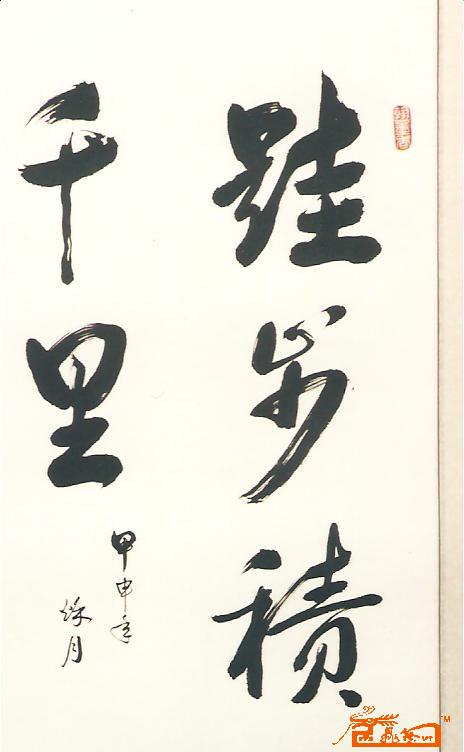 跬步積
千里
甲申年
秋月